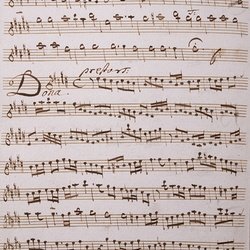 presto
Dona